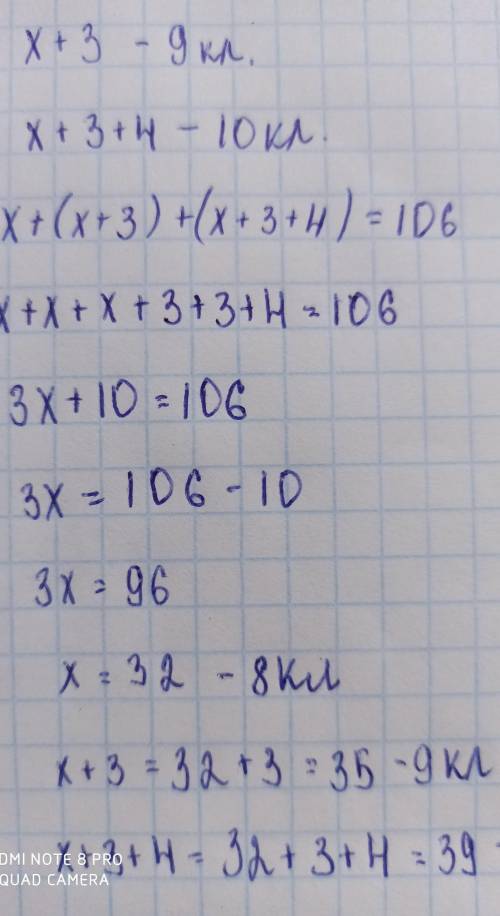 x + 3 - 9 кл.
x + 3 + 4 - 10 кл.
x + (x + 3) + (x + 3 + 4) = 106
x + x + x + 3 + 3 + 4 = 106
3x + 10 = 106
3x = 106 - 10
3x = 96
x = 32 - 8 кл
x + 3 = 32 + 3 = 35 - 9 кл
x + 3 + 4 = 32 + 3 + 4 = 39 -
DMI NOTE 8 PRO
QUAD CAMERA